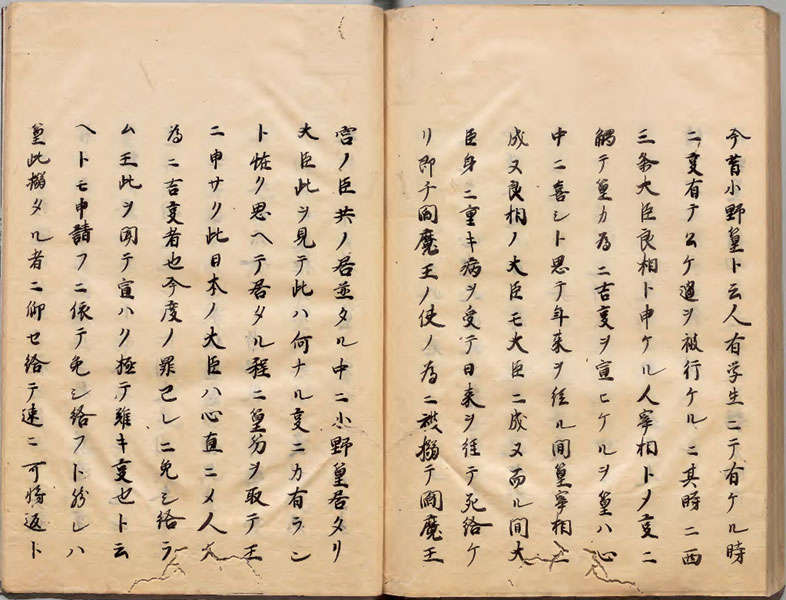 今昔小野篁ト云人有学生ニテ有ケル時
ニ事有テ公ケ過ヲ被行ケルニ其時ニ西
三条大臣良相ト申ケル人宰相トノ事ニ
觸テ篁カ為ニ吉事ヲ宣ヒケルヲ篁ハ心
中ニ喜シト思テ年来ヲ経ル間篁宰相ニ
成又良相ノ大臣モ大臣ニ成又而ル間大
臣身ニ重キ病ヲ受テ日来ヲ経テ死給ケ
リ即チ閻魔王ノ使ノ為ニ被搦テ閻魔王
宮ノ臣共ノ居並タル中ニ小野篁居タリ
大臣此ヲ見テ此ハ何ナル事ニカ有ラン
ト怪ク思ヘテ居タル程ニ篁笏ヲ取テ王
ニ申サク此日本ノ大臣ハ心直ニメ人ノ
為ニ吉事者也今度ノ罪己レニ免シ給ラ
ム王此ヲ聞テ宣ハク極テ難キ事也ト云
ヘトモ申請フニ依テ免シ給フト然レハ
篁此搦タル者ニ仰セ給テ速ニ可将返ト